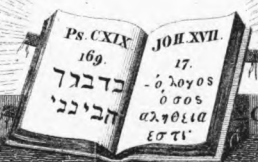 Ps. CXIX.
169.
כדבגך
הבינני
JOH. XVII.
17.
- ὁ λογος
ὁ σος
αληθεια
εστι·